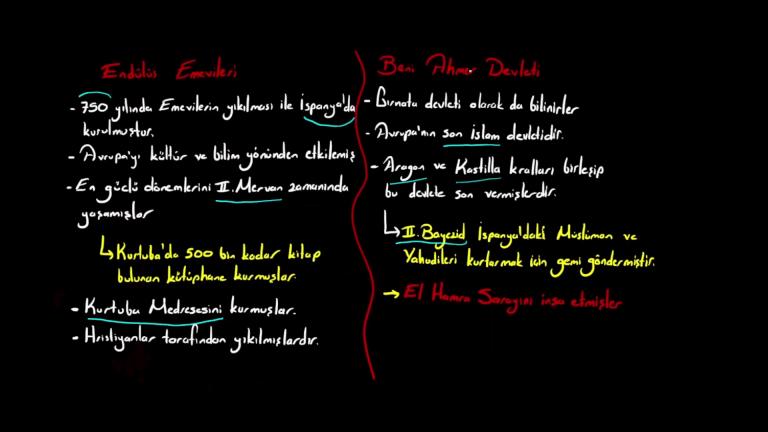 Endülüs Emevileri
- 750 yılında Emevilerin yıkılması ile İspanya'da
kurulmuştur.
- Avrupa'yı kültür ve bilim yönünden etkilemiş
- En güçlü dönemlerini II. Mervan zamanında
yaşamışlar
↳ Kurtuba'da 500 bin kadar kitap
bulunan kütüphane kurmuşlar.
- Kurtuba Medresesini kurmuşlar.
- Hristiyanlar tarafından yıkılmışlardır.
Beni Ahmer Devleti
- Gırnata devleti olarak da bilinirler
- Avrupa'nın son İslam devletidir.
- Aragon ve Kastilla kralları birleşip
bu devlete son vermişlerdir.
↳ II. Bayezid İspanya'daki Müslüman ve
Yahudileri kurtarmak için gemi göndermiştir.
→ El Hamra Sarayını inşa etmişler